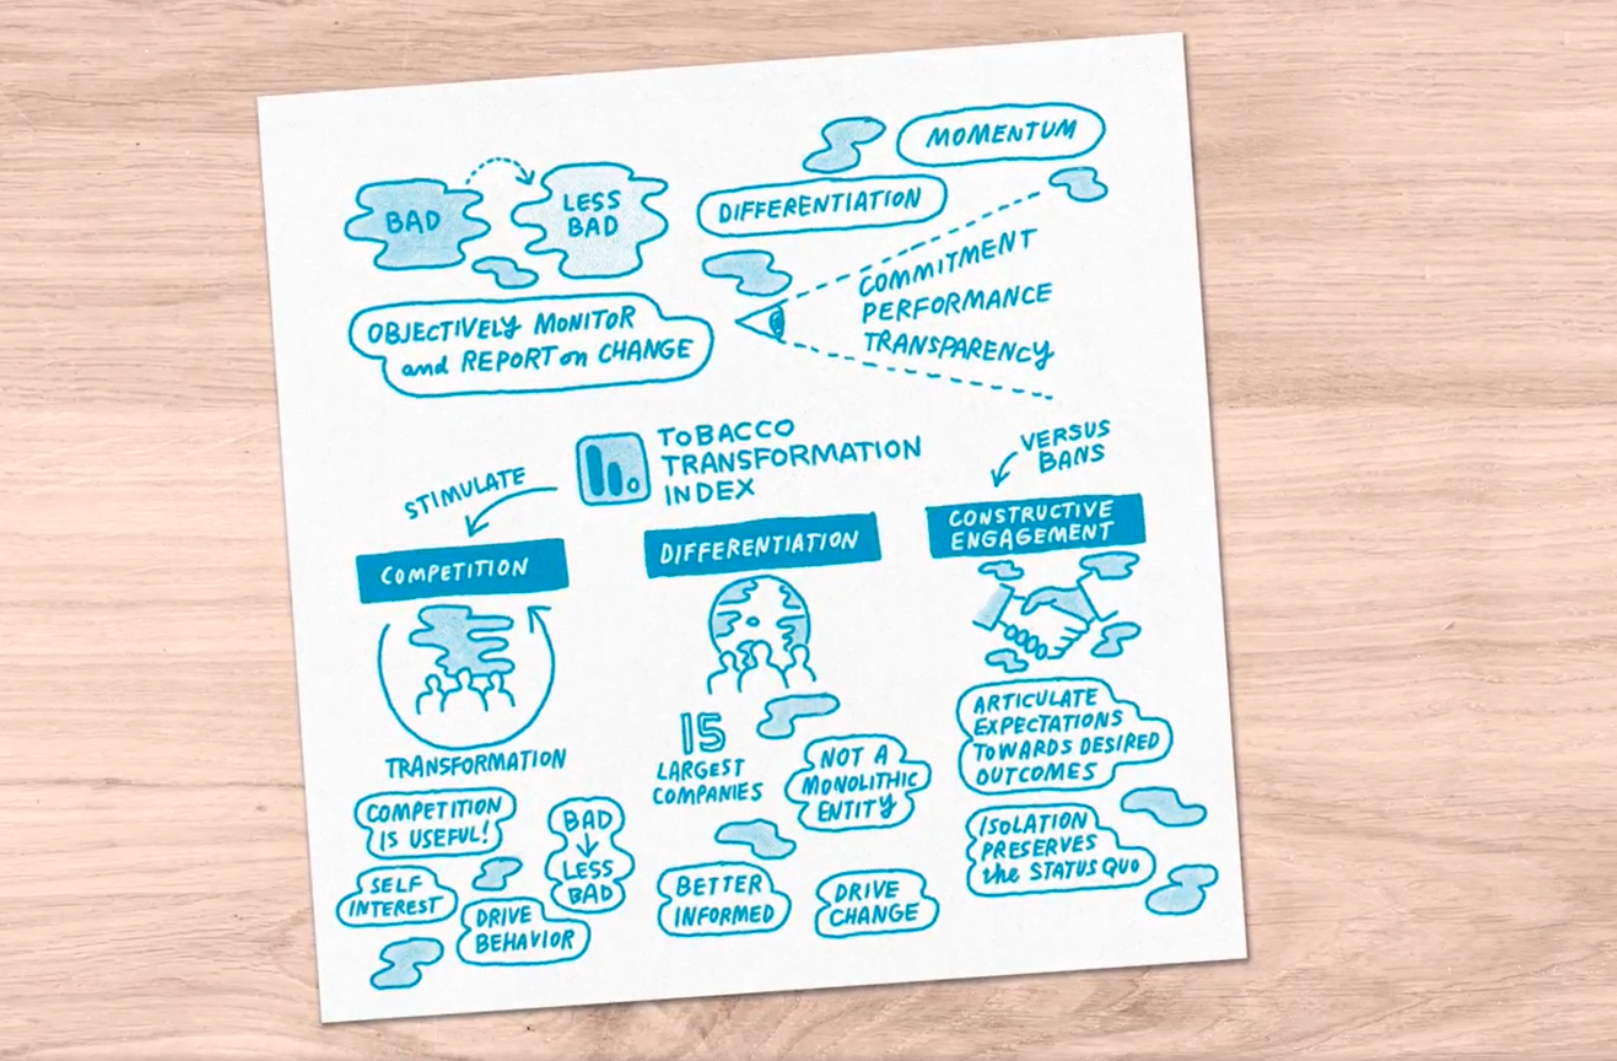 MOMENTUM
BAD
LESS
BAD
DIFFERENTIATION
COMMITMENT
PERFORMANCE
TRANSPARENCY
OBJECTIVELY MONITOR
and REPORT on CHANGE
TOBACCO
TRANSFORMATION
INDEX
STIMULATE
VERSUS
BANS
COMPETITION
DIFFERENTIATION
CONSTRUCTIVE
ENGAGEMENT
TRANSFORMATION
COMPETITION
IS USEFUL!
BAD
LESS
BAD
SELF
INTEREST
DRIVE
BEHAVIOR
15
LARGEST
COMPANIES
NOT A
MONOLITHIC
ENTITY
BETTER
INFORMED
DRIVE
CHANGE
ARTICULATE
EXPECTATIONS
TOWARDS DESIRED
OUTCOMES
ISOLATION
PRESERVES
the STATUS QUO